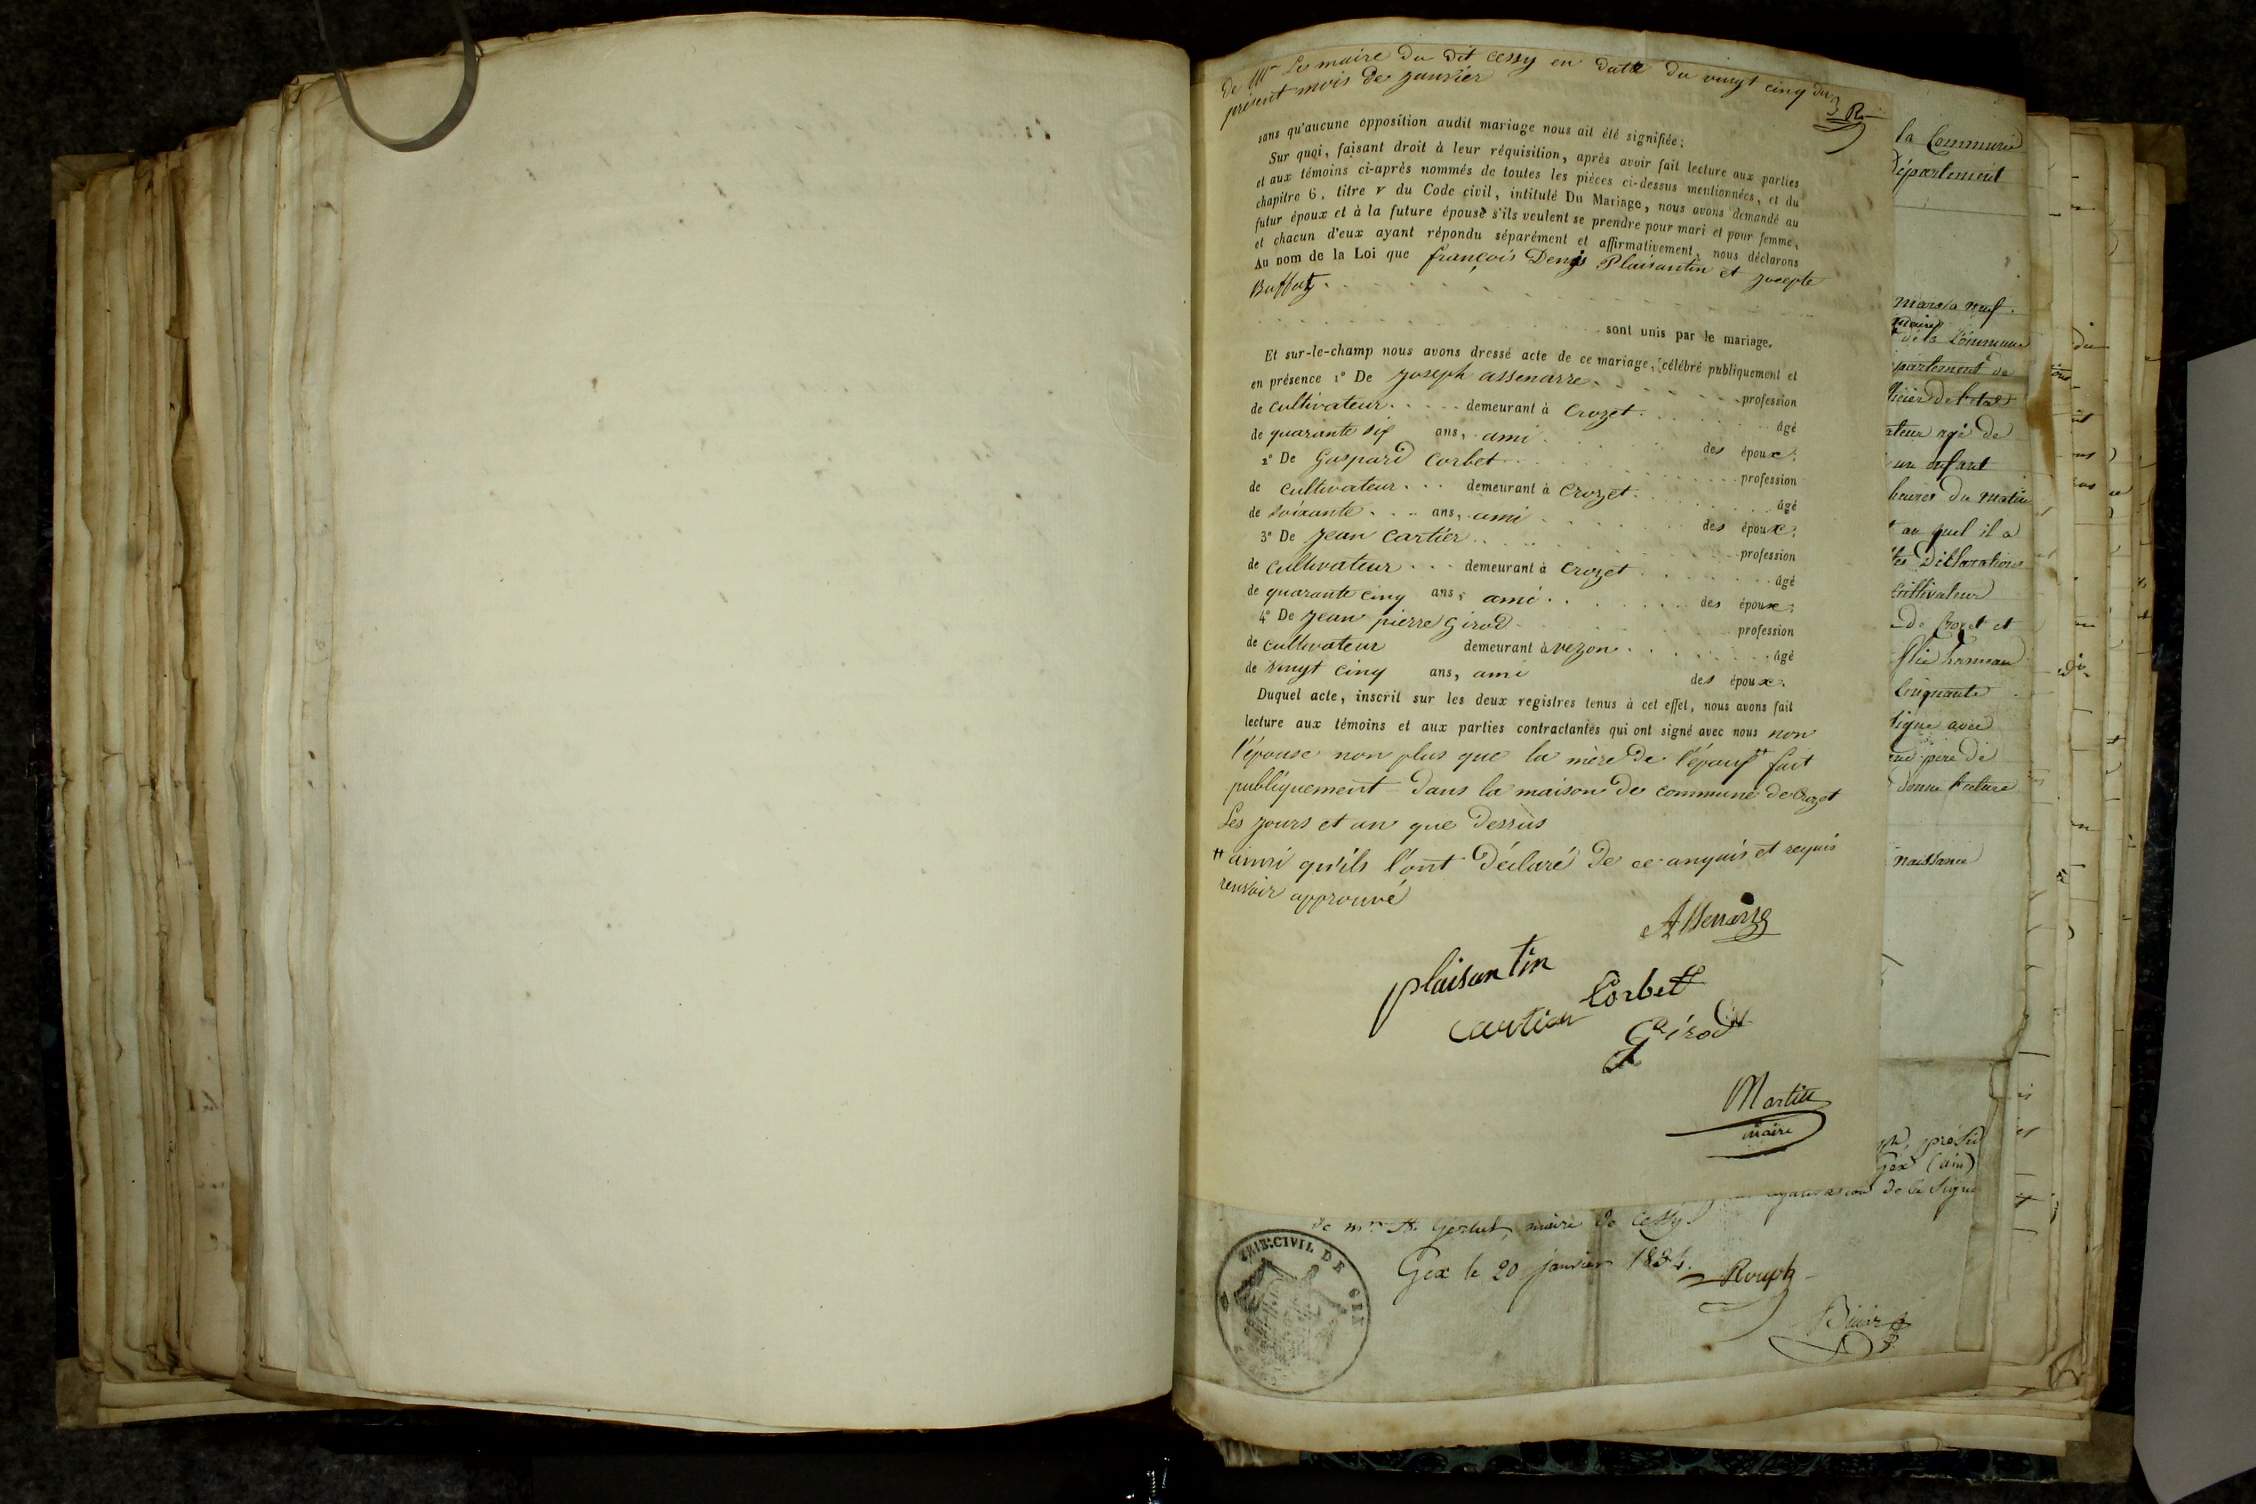 De Mr Le maire du dit cessy en date du vingt cinq du
présent mois de janvier
sans qu'aucune opposition audit mariage nous ait été signifiée;
Sur quoi, faisant droit à leur réquisition, après avoir fait lecture aux parties
et aux témoins ci-après nommés de toutes les pièces ci-dessus mentionnées, et du
chapitre 6, titre v du Code civil, intitulé Du Mariage, nous avons demandé au
futur époux et à la future épouse s'ils veulent se prendre pour mari et pour femme,
et chacun d'eux ayant répondu séparément et affirmativement, nous déclarons
Au nom de la Loi que françois Denis Plaisantin et josepte
Buffat
sont unis par le mariage.
Et sur-le-champ nous avons dressé acte de ce mariage, célébré publiquement et
en présence 1º De joseph assenarre
profession
de cultivateur demeurant à Crozet
âgé
de quarante six ans, ami des époux;
2º De Gaspard Corbet
profession
de cultivateur demeurant à Crozet
âgé
de soixante ans, ami des époux;
3º De jean Cartier
profession
de cultivateur demeurant à Crozet
âgé
de quarante cinq ans, ami des époux;
4º De jean pierre girod
profession
de cultivateur demeurant à vezon
âgé
de vingt cinq ans, ami des époux.
Duquel acte, inscrit sur les deux registres tenus à cet effet, nous avons fait
lecture aux témoins et aux parties contractantes qui ont signé avec nous non
l'épouse non plus que la mère de l'époux fait
publiquement dans la maison de commune de Crozet
Les jours et an que dessus
ainsi qu'ils l'ont déclaré de ce anquis et requis
renvoir approuvé
Assenarre
plaisantin
Corbet
cartier
Girod
Martin
maire
la Commune
Département
mars a neuf
maire
de la Commune
partement de
ateur agé de
un enfant
heures du matin
au quel il a
tes Déclarations
Cultivateur
de Crozet et
hameau
Cinquante
signé avec
père de
donné lecture
naissance
Gex (ain)
de la signe
de mr
maire de Cessy
TRIB. CIVIL DE GEX
Gex le 20 janvier 1834.
Rouph